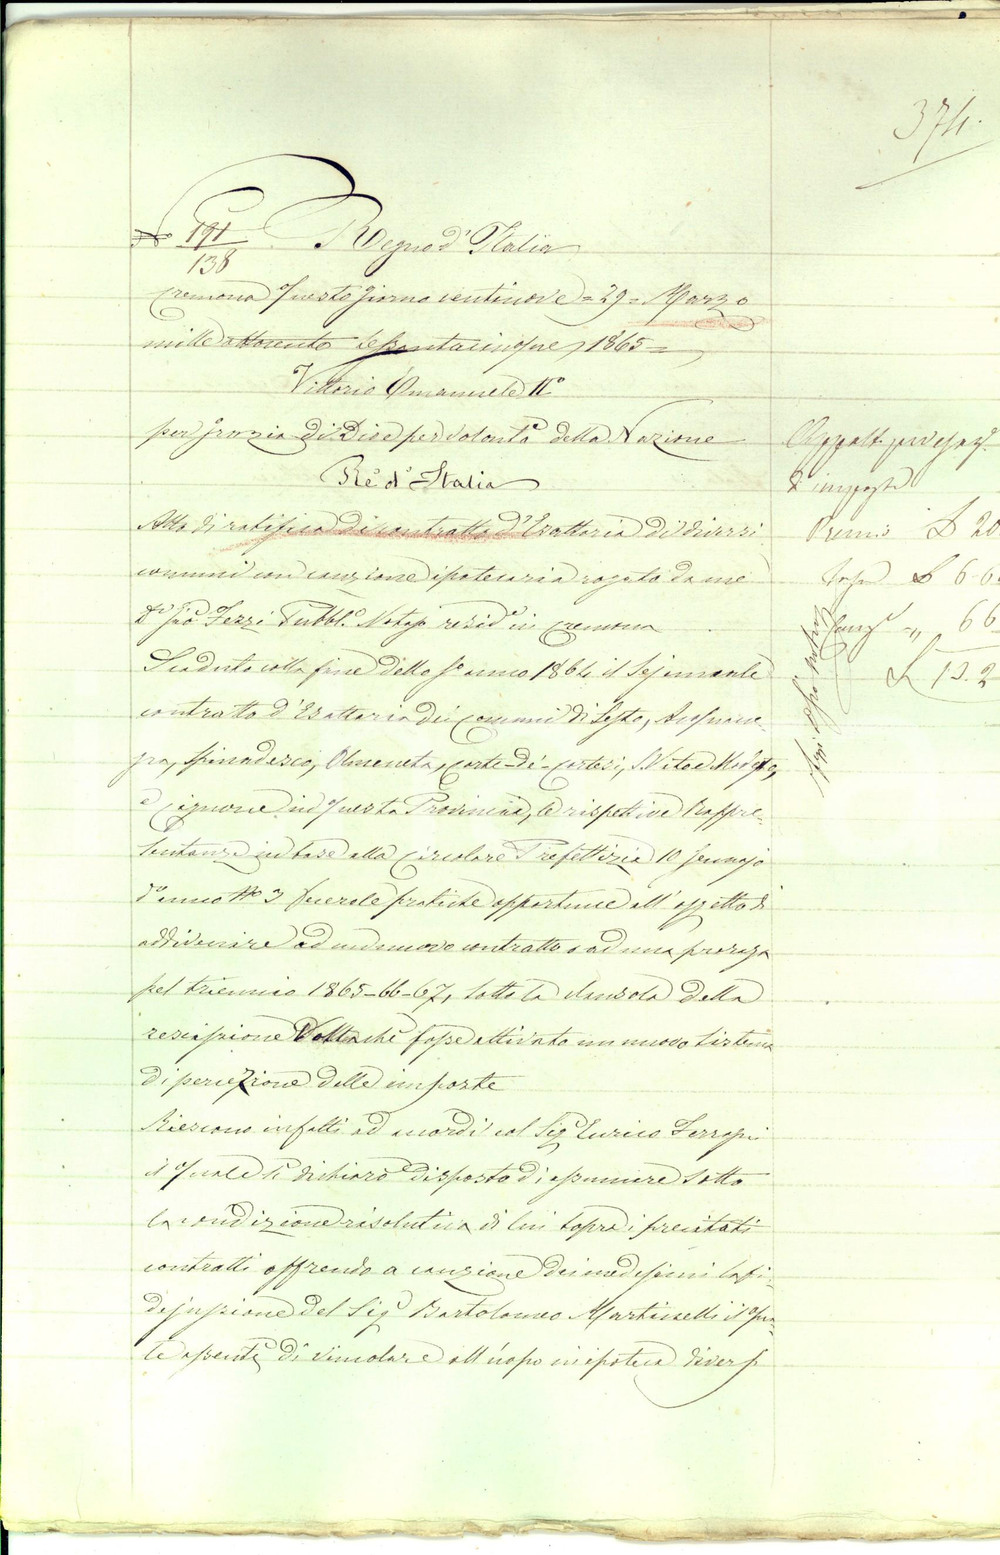 374.
N° 191/138 Regno d'Italia
Cremona questo giorno ventinove = 29 = Marzo
mille ottocento sessantacinque 1865 =
Vittorio Emanuele II°
per grazia di Dio e per volontà della Nazione
Re d'Italia
Atto di ratifica di contratto d'Esattoria di diversi
comuni con cauzione ipotecaria rogato da me
Dr Gio. Fezzi Pubbl.° Notajo resid.e in Cremona
Scaduto colla fine dello p° anno 1864 il sejennale
contratto d'Esattoria dei Comuni di Sesto, Acquane-
gra, Spinadesco, Olmeneta, Corte de' Cortesi, S. Vito e Modesto,
e Cignone in questa Provincia, le rispettive Rappre-
sentanze in base alla Circolare Prefettizia 10 Gennajo
d° anno N° 3 fecero le pratiche opportune all'oggetto di
addivenire ad un nuovo contratto o ad una proroga
pel triennio 1865-66-67, sotto la clausola della
rescissione vollachè fosse attivato un nuovo sistema
di percezione delle imposte
Riescono infatti ad accordi col Sig.r Enrico
il quale si dichiarò disposto di assumere sotto
la condizione risolutiva di cui sopra i precitati
contratti offrendo a cauzione dei medesimi la fi-
dejussione del Sig.r Bartolomeo Martinelli il qua-
le assentì di vincolare all'uopo in ipoteca diversi
Appalt per esaz.e
d'imposte
Premio £ 20
£ 6.6
" 66
£ 13.2